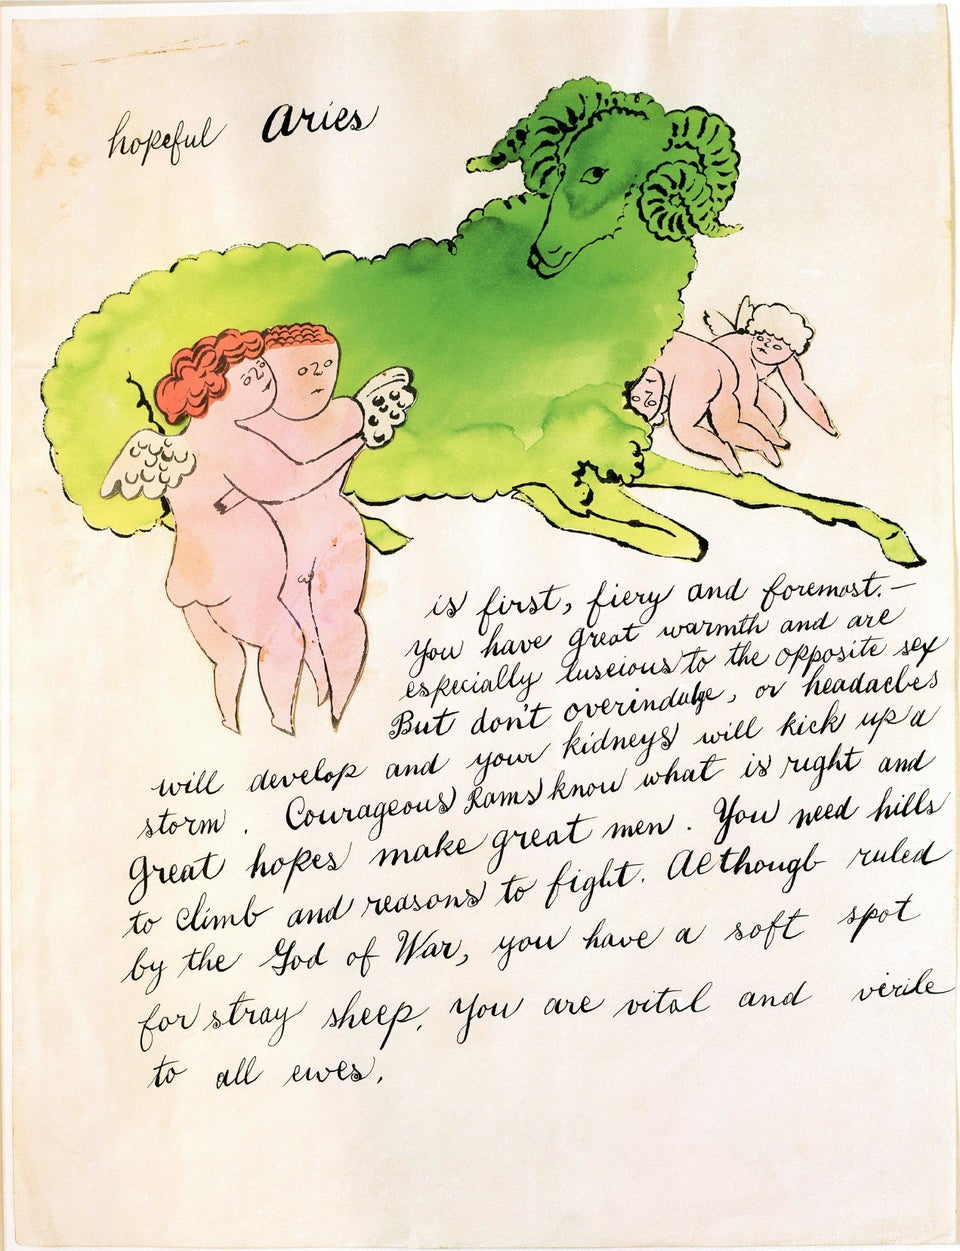 hopeful Aries
is first, fiery and foremost.—
You have great warmth and are
especially luscious to the opposite sex
But don't overindulge, or headaches
will develop and your kidneys will kick up a
storm. Courageous Rams know what is right and
great hopes make great men. You need hills
to climb and reasons to fight. Although ruled
by the God of War, you have a soft spot
for stray sheep. You are vital and virile
to all ewes.